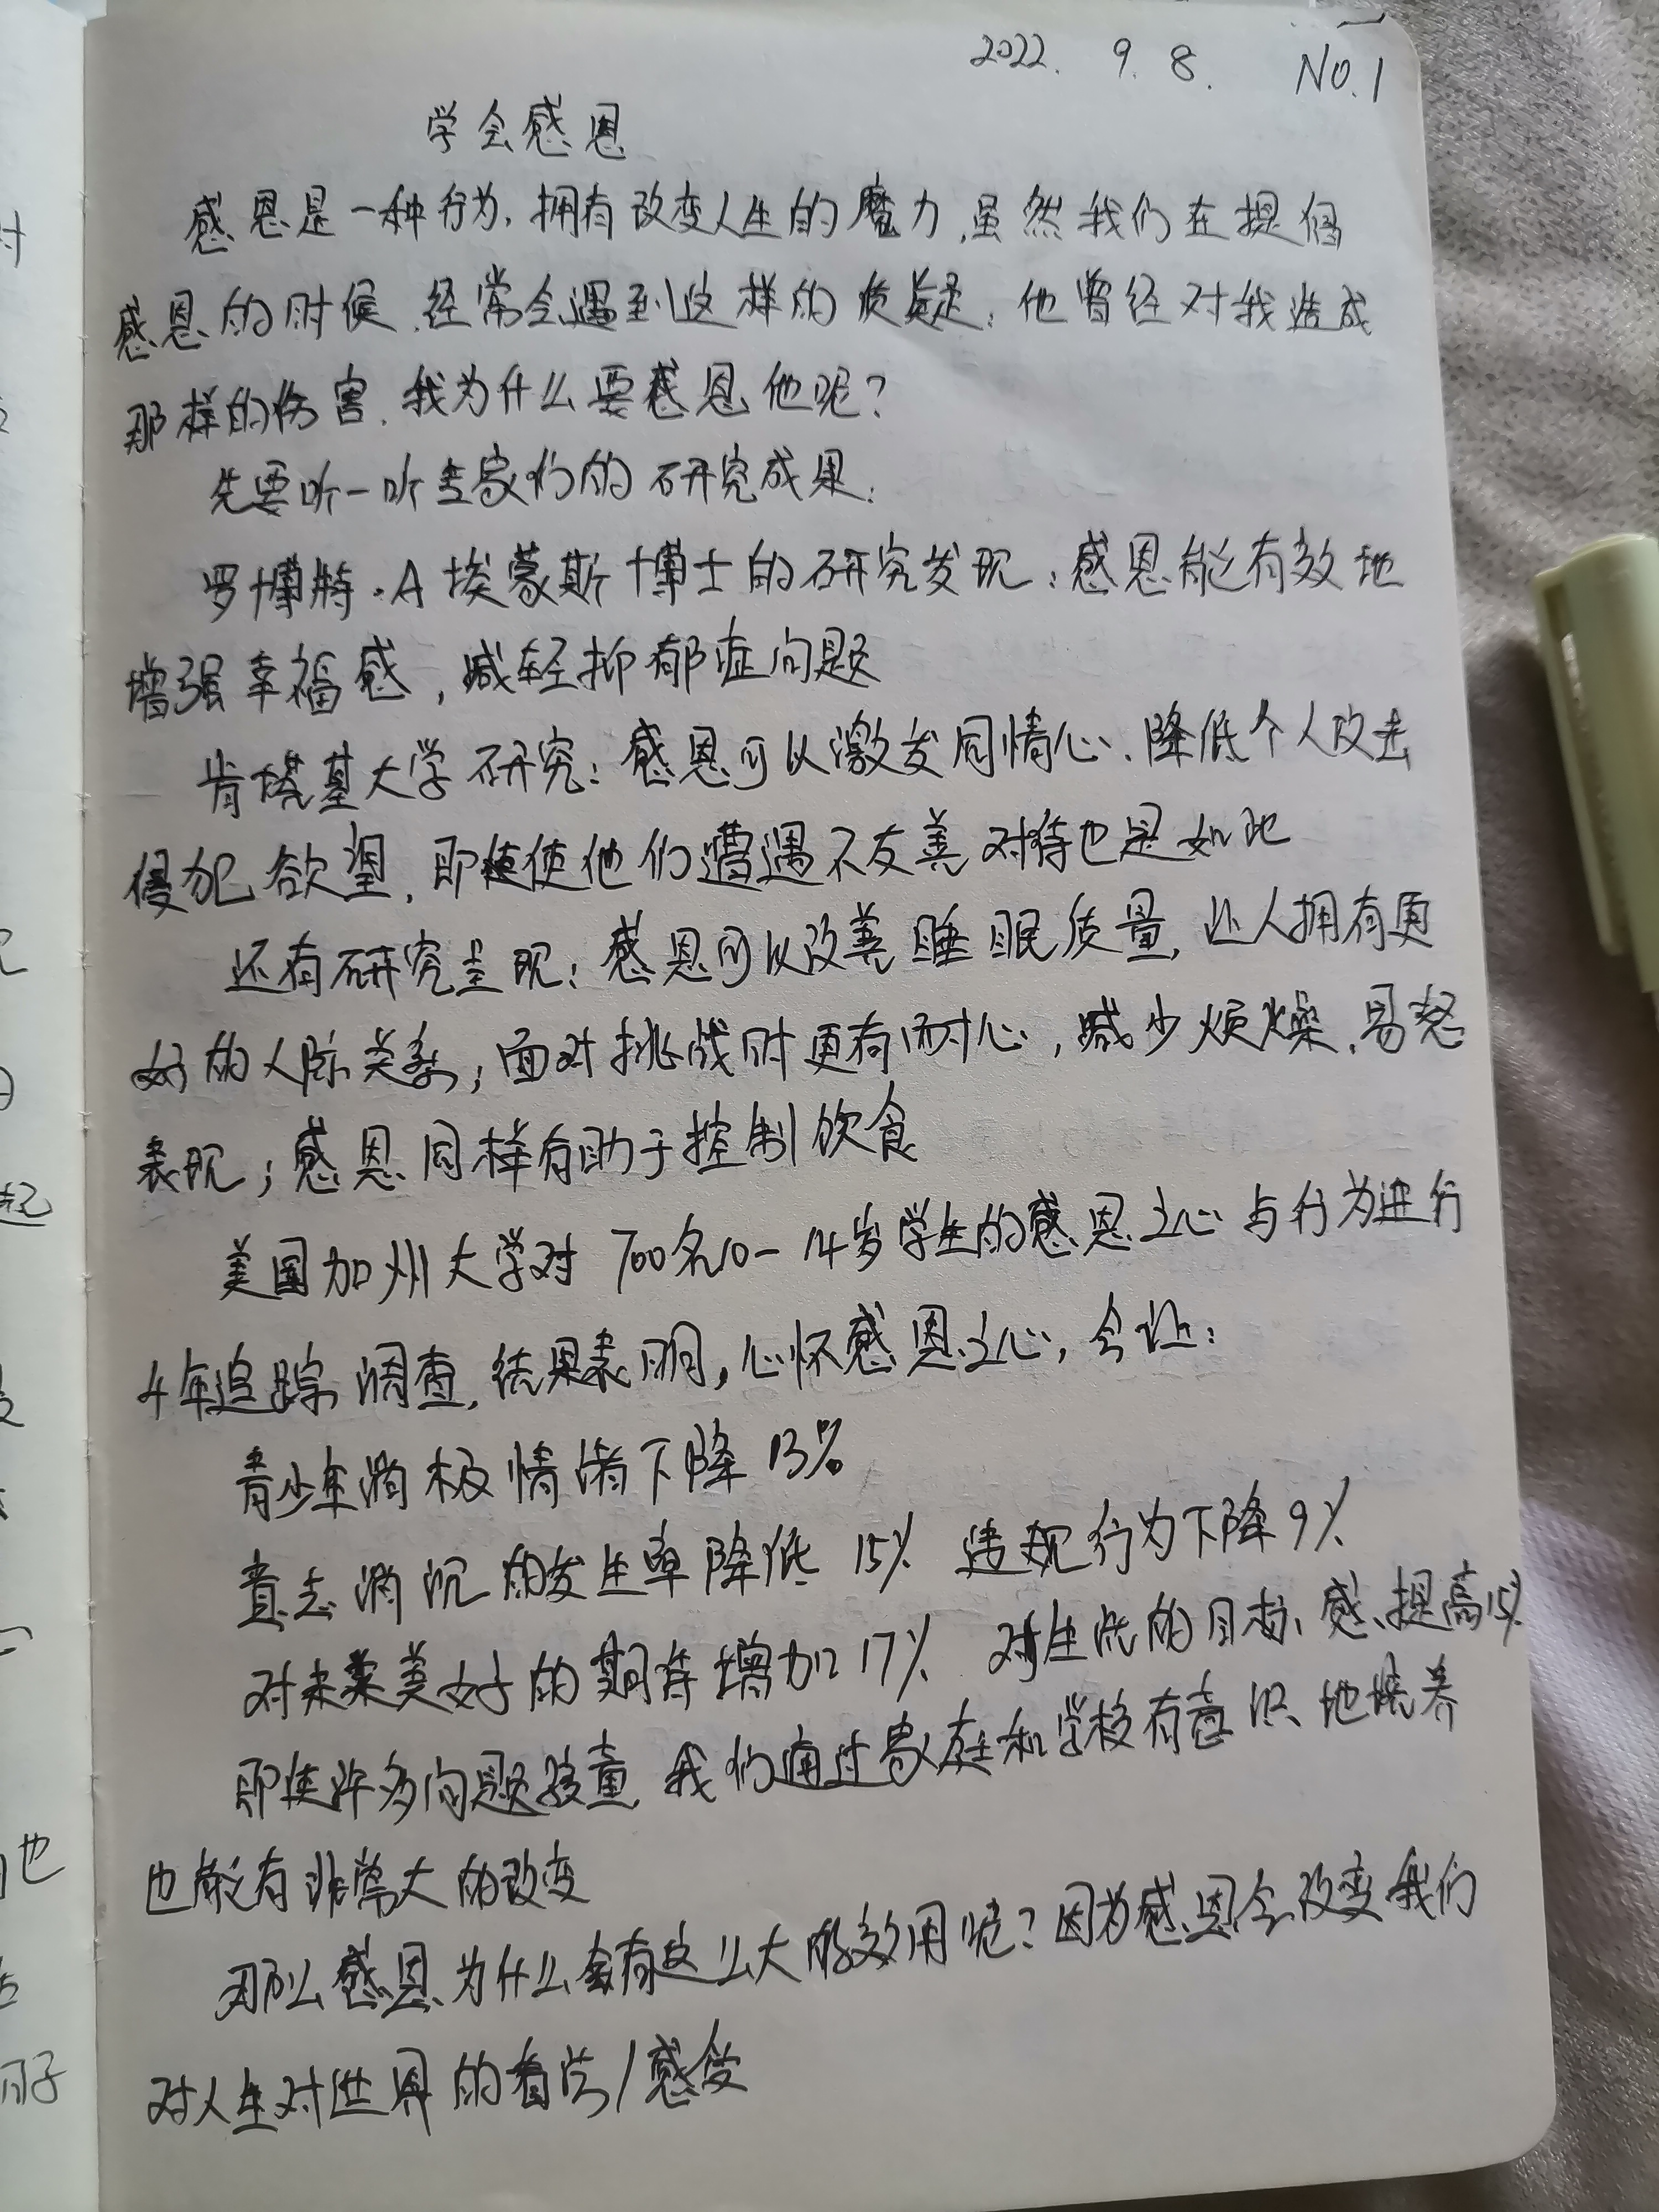 2022. 9. 8. NO.1
学会感恩
感恩是一种行为,拥有改变人生的魔力,虽然我们在提倡
感恩的时候,经常会遇到这样的质疑:他曾经对我造成
那样的伤害,我为什么要感恩他呢?
先要听一听专家们的研究成果:
罗博特·A埃蒙斯博士的研究发现:感恩能有效地
增强幸福感,减轻抑郁症问题
肯塔基大学研究:感恩可以激发同情心、降低个人攻击
侵犯欲望,即使使他们遭遇不友善对待也是如此
还有研究呈现:感恩可以改善睡眠质量,让人拥有更
好的人际关系;面对挑战时更有耐心,减少烦燥、易怒
表现;感恩同样有助于控制饮食
美国加州大学对700名10-14岁学生的感恩之心与行为进行
4年追踪调查,结果表明,心怀感恩之心,会让:
青少年消极情绪下降13%
意志消沉的发生率降低15% 违规行为下降9%
对未来美好的期待增加17% 对生活的目标感提高15%
即使许多问题孩童,我们通过家庭和学校有意识地培养
也能有非常大的改变
那么感恩为什么会有这么大的效用呢?因为感恩会改变我们
对人生对世界的看法/感受
对
也
起